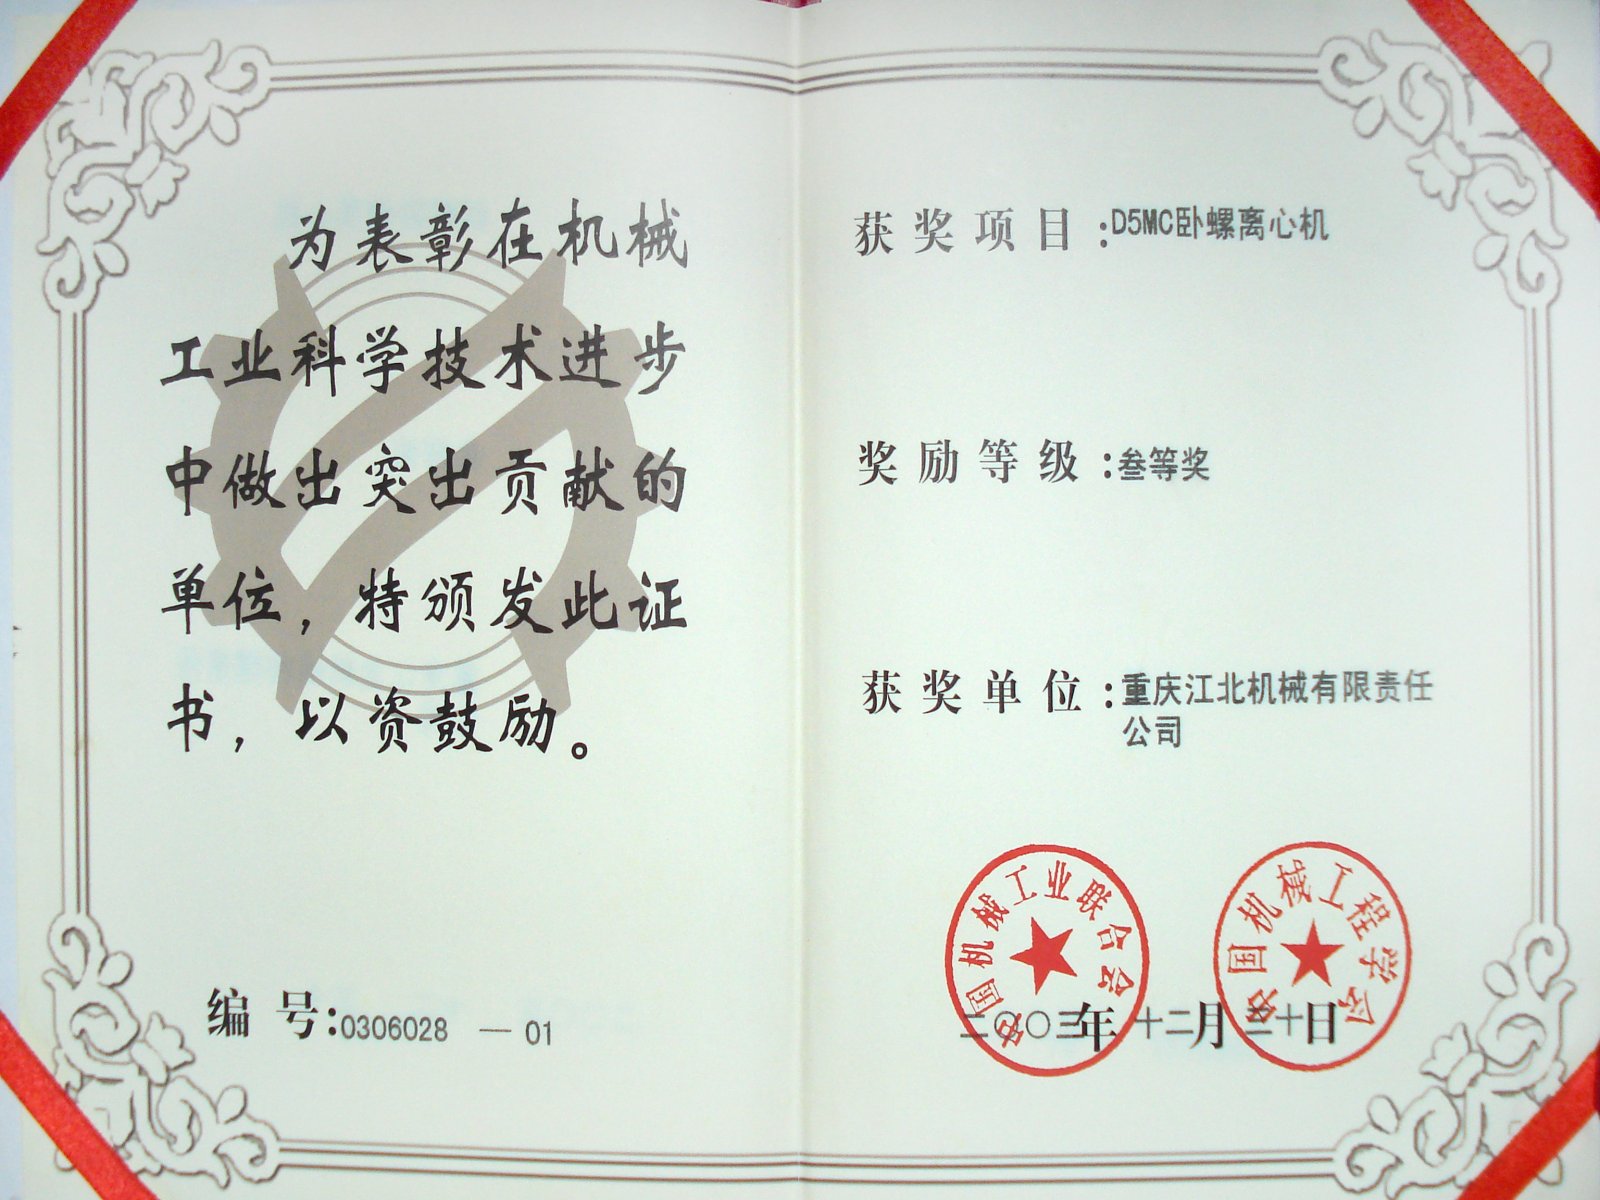 为表彰在机械
工业科学技术进步
中做出突出贡献的
单位，特颁发此证
书，以资鼓励。
编号:0306028 — 01
获奖项目:D5MC卧螺离心机
奖励等级:叁等奖
获奖单位:重庆江北机械有限责任
公司
中国机械工业联合会
中国机械工程学会
二〇〇三年十二月三十日